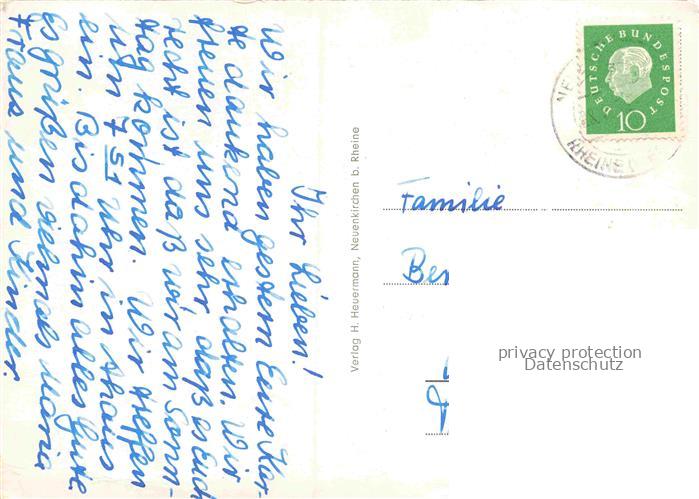 Ihr Lieben!
Wir haben gestern Eure Kar-
te dankend erhalten. Wir
freuen uns sehr daß es Euch
recht ist daß wir am Sonn-
tag kommen. Wir treffen
um 7 51 Uhr in Ahaus
ein. Bis dahin alles Gute
Es grüßen vielmals Maria
Franz und Kinder.
Verlag H. Heuermann, Neuenkirchen b. Rheine
DEUTSCHE BUNDESPOST
10
RHEINE
Familie
privacy protection
Datenschutz